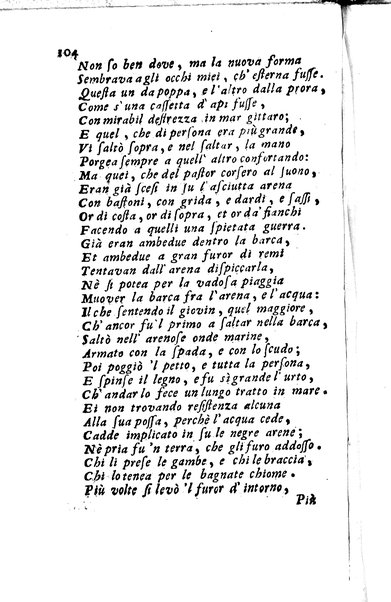 104
Non ſo ben dove, ma la nuova forma
Sembrava agli occhi miei, ch' eſterna fuſſe.
Queſta un da poppa, e l'altro dalla prora,
Come s'una caſſetta d' api fuſſe,
Con mirabil deſtrezza in mar gittaro;
E quel, che di perſona era più grande,
Vi ſaltò ſopra, e nel ſaltar, la mano
Porgea ſempre a quell' altro confortando:
Ma quei, che del paſtor corſero al ſuono,
Eran già ſceſi in ſu l'aſciutta arena
Con baſtoni, con grida, e dardi, e ſaſſi,
Or di coſta, or di ſopra, et or da' fianchi
Facendo a quelli una ſpietata guerra.
Già eran ambedue dentro la barca,
Et ambedue a gran furor di remi
Tentavan dall' arena diſpiccarla,
Nè ſi potea per la vadoſa piaggia
Muover la barca fra l'arena, e l'acqua:
Il che ſentendo il giovin, quel maggiore,
Ch' ancor fu'l primo a ſaltar nella barca,
Saltò nell' arenoſe onde marine,
Armato con la ſpada, e con lo ſcudo;
Poi poggiò 'l petto, e tutta la perſona,
E ſpinſe il legno, e fu sì grande l'urto,
Ch' andar lo fece un lungo tratto in mare.
Ei non trovando reſiſtenza alcuna
Alla ſua poſſa, perchè l'acqua cede,
Cadde implicato in ſu le negre arene;
Nè pria fu 'n terra, che gli furo addoſſo.
Chi li preſe le gambe, e chi le braccia,
Chi lo tenea per le bagnate chiome.
Più volte ſi levò 'l furor d' intorno,
Più